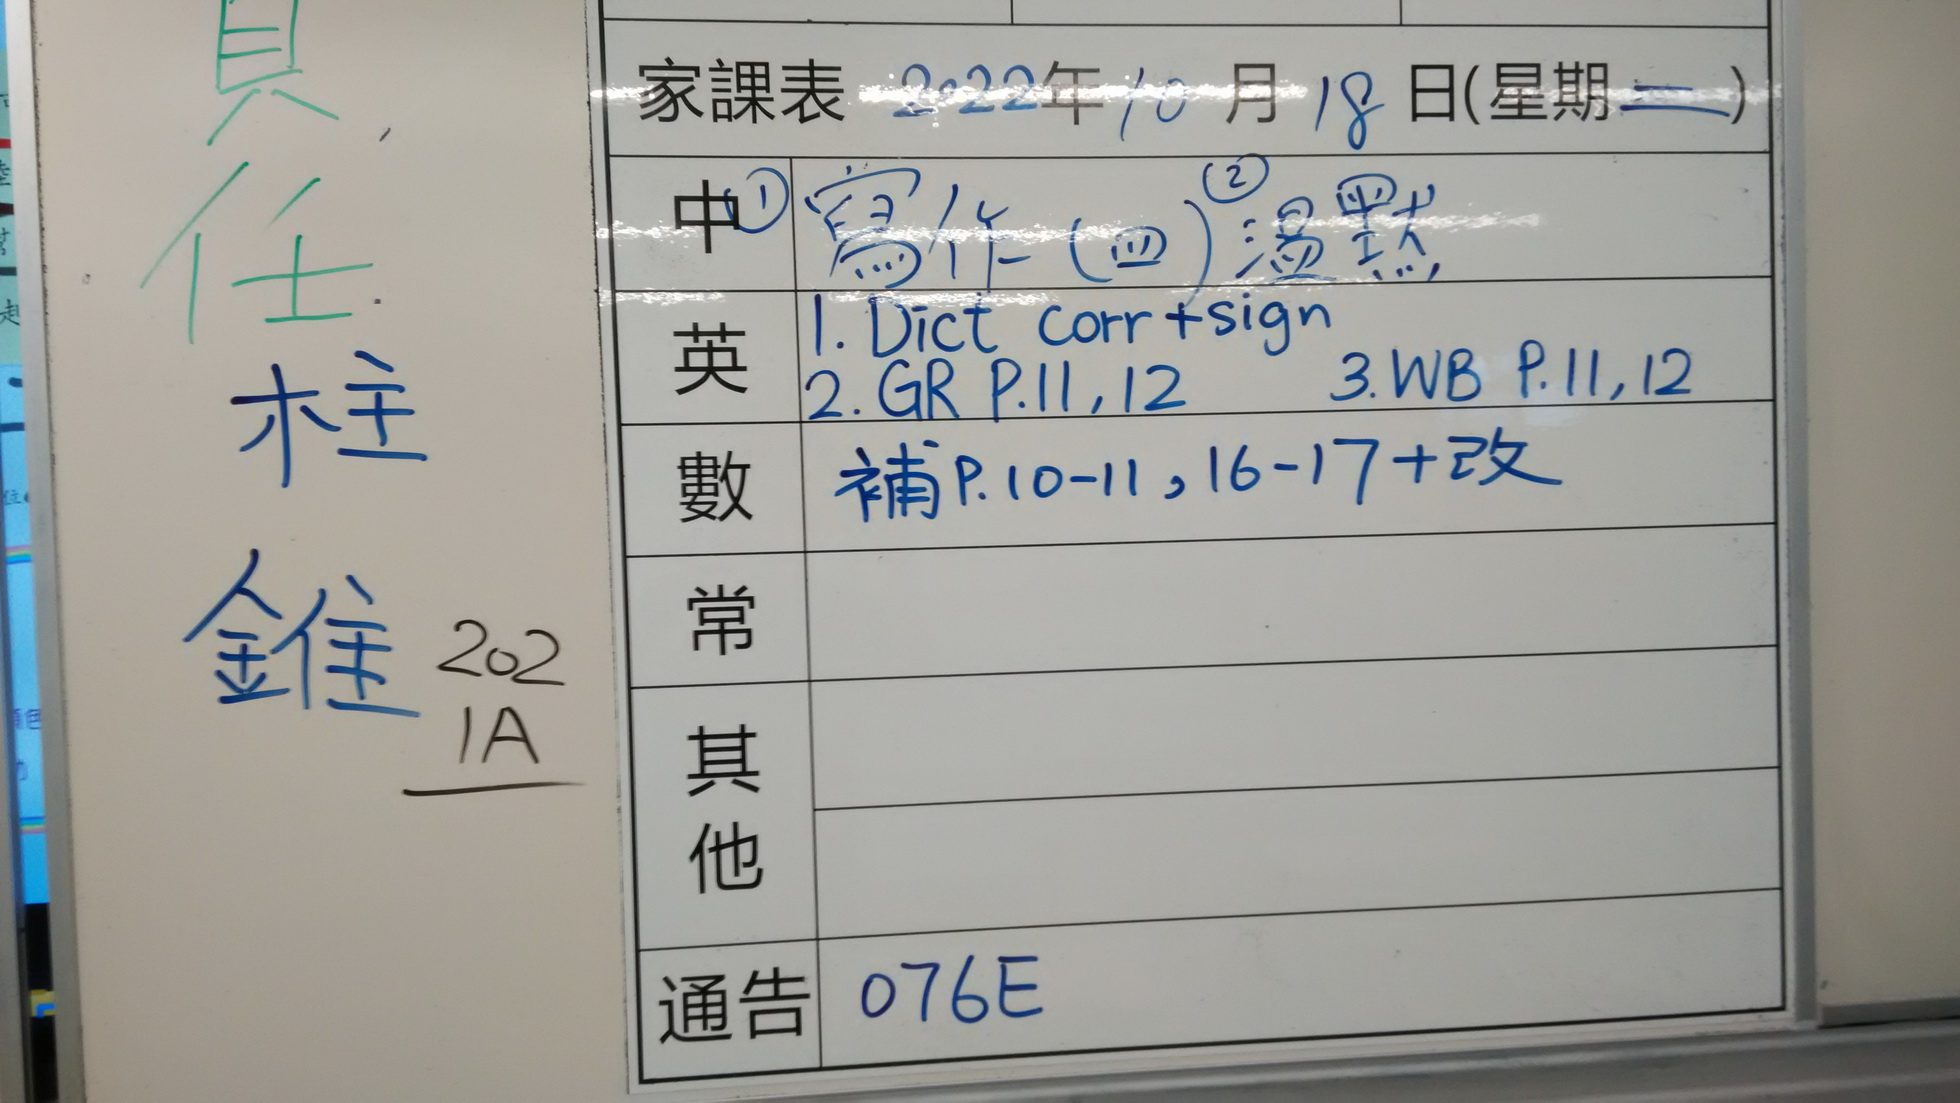 責任
柱
錐
202
1A
家課表 2022年10月18日(星期二)
中 ① 寫作(四) ② 溫默
英 1. Dict corr + sign
2. GR P.11, 12 3. WB P.11, 12
數 補 P.10-11, 16-17 + 改
常
其他
通告 076E